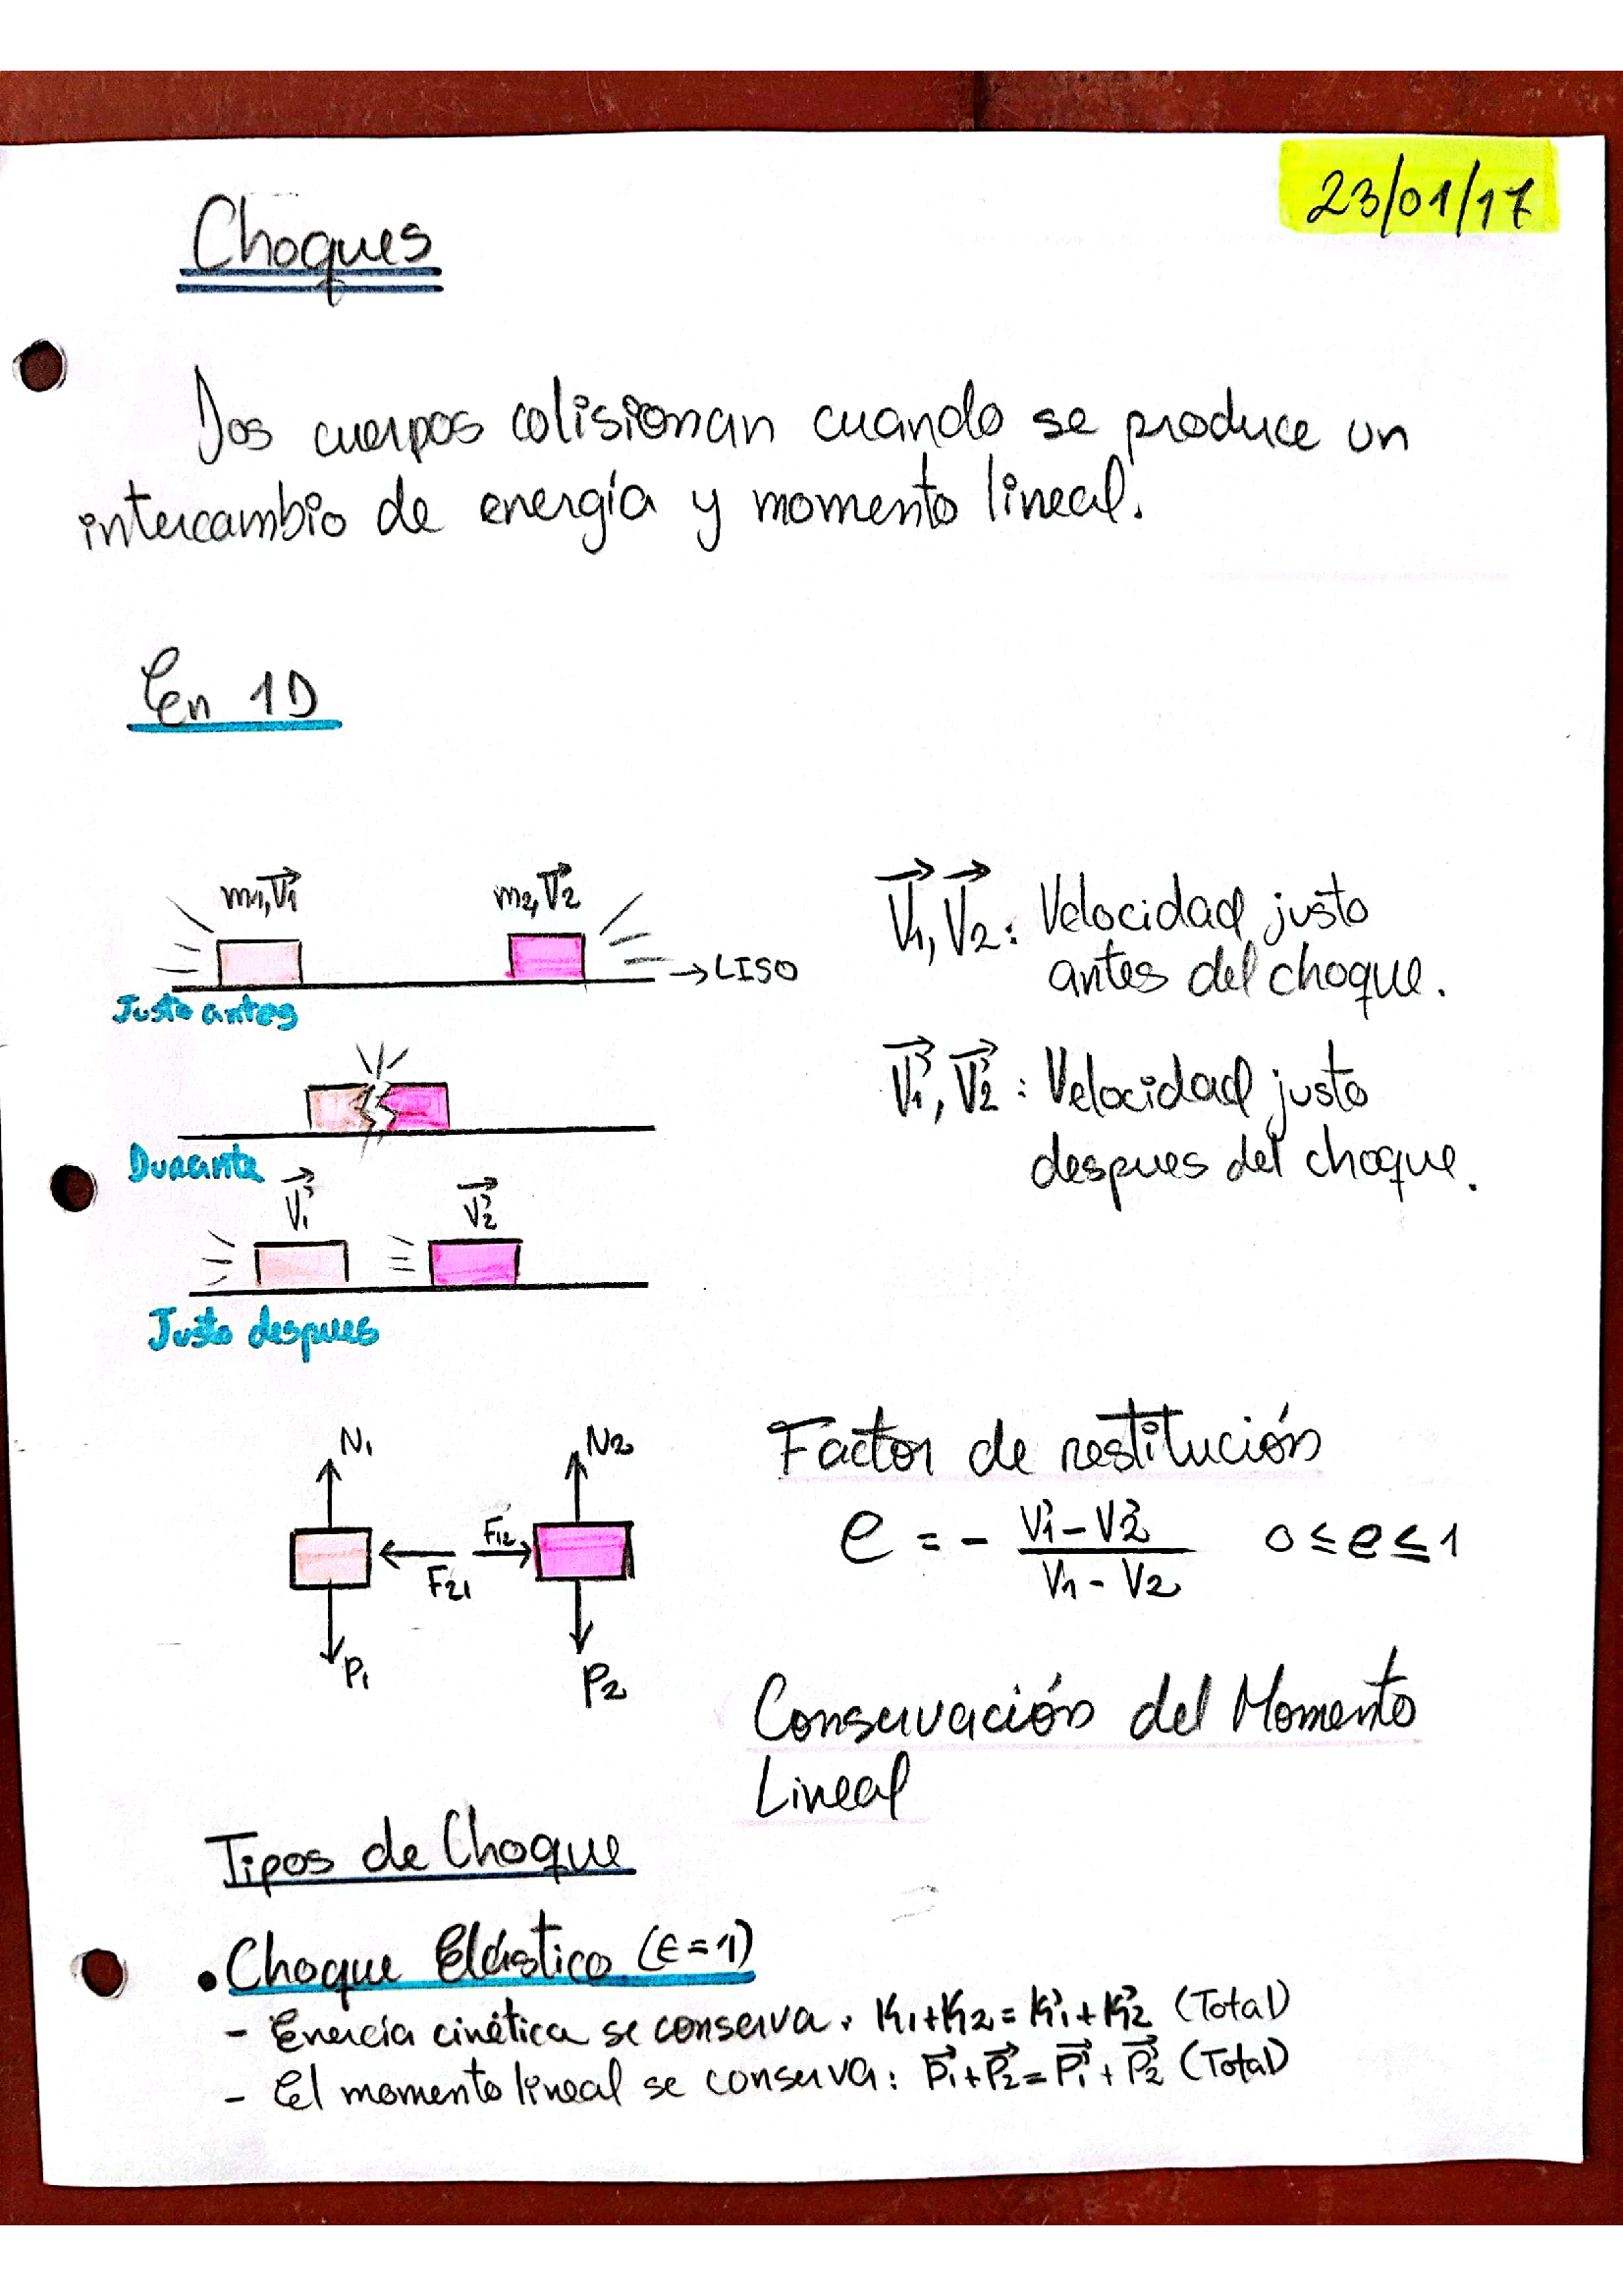 23/01/17
Choques
Dos cuerpos colisionan cuando se produce un
intercambio de energía y momento lineal.
En 1D
m1, V1 m2, V2
→ LISO
Justo antes
V1, V2: Velocidad justo
antes del choque.
Durante
V1', V2': Velocidad justo
despues del choque.
V1' V2'
Justo despues
N1 N2
F12
F21
P1 P2
Factor de restitución
e = - (V1' - V2') / (V1 - V2) 0 ≤ e ≤ 1
Conservación del Momento
Lineal
Tipos de Choque
• Choque Elástico (e=1)
- Enercía cinética se conserva. K1+K2 = K1'+K2' (Total)
- El momento lineal se conserva: P1+P2 = P1'+P2' (Total)